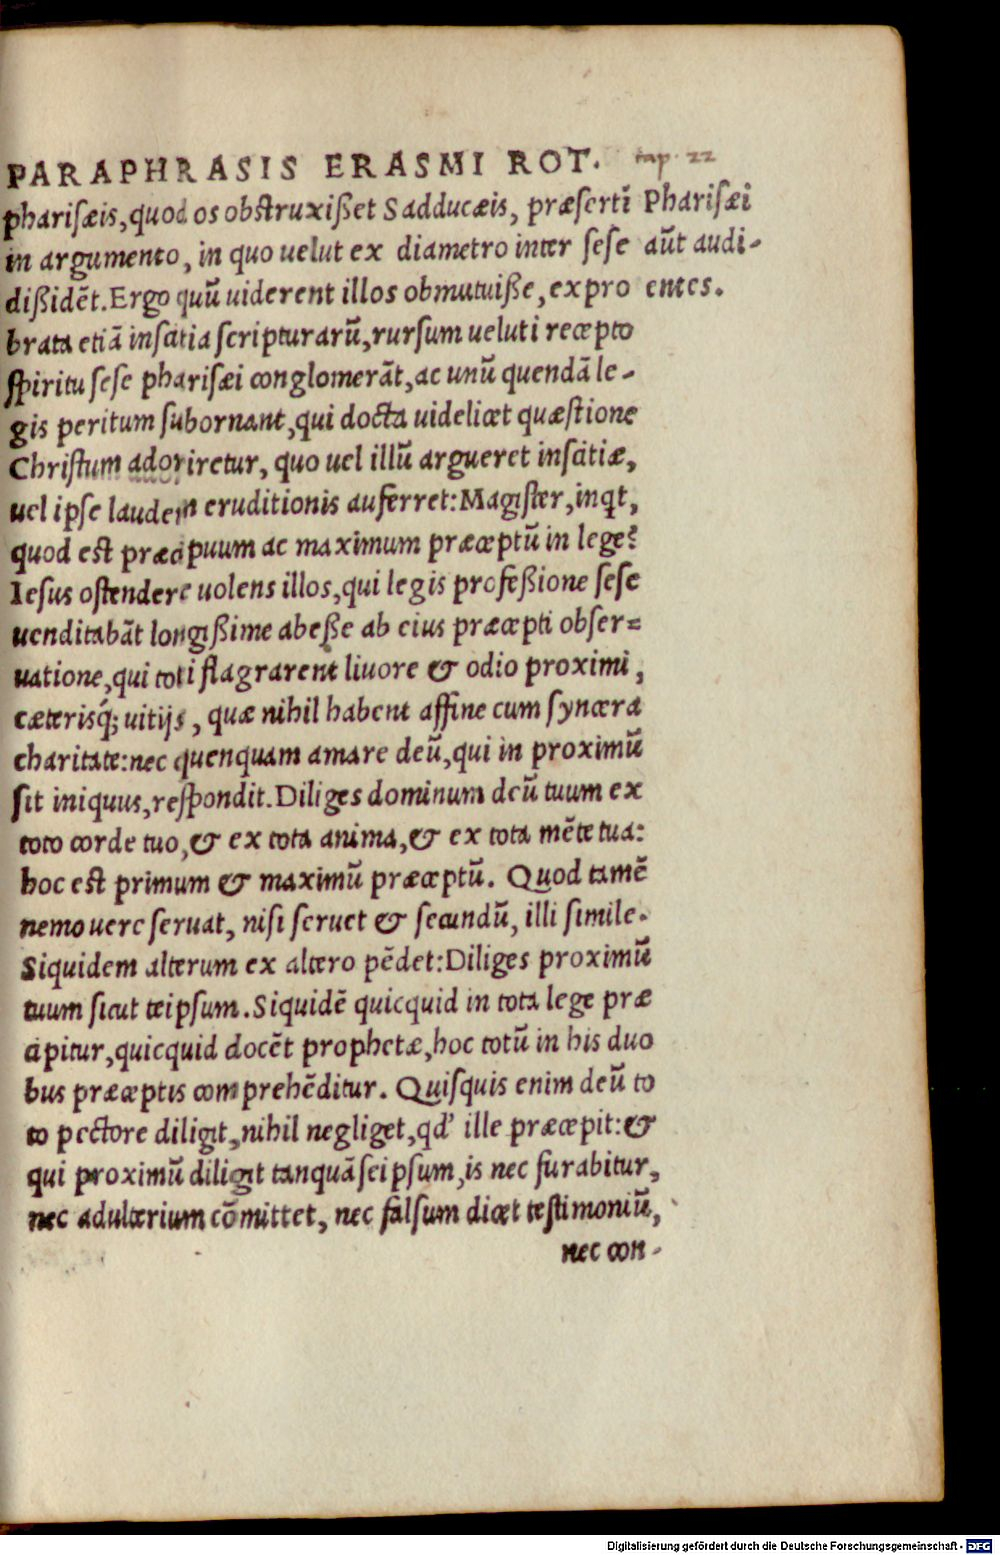 PARAPHRASIS ERASMI ROT. cap. 22
pharisæis, quod os obstruxißet Sadducæis, præsertĩ
in argumento, in quo uelut ex diametro inter sese
dißidẽt. Ergo quũ uiderent illos obmutuiße, expro
brata etiã inscitia scripturarũ, rursum ueluti recepto
spiritu sese pharisæi conglomerãt, ac unũ quendã le-
gis peritum subornant, qui docta uidelicet quæstione
Christum adoriretur, quo uel illũ argueret inscitiæ,
uel ipse laudem eruditionis auferret: Magister, inq̃t,
quod est præcipuum ac maximum præceptũ in lege?
Iesus ostendere uolens illos, qui legis profeßione sese
uenditabãt longißime abeße ab eius præcepti obser=
uatione, qui toti flagrarent liuore & odio proximi,
cæterisq́; uitijs, quæ nihil habent affine cum syncera
charitate: nec quenquam amare deũ, qui in proximũ
sit iniquus, respondit. Diliges dominum deũ tuum ex
toto corde tuo, & ex tota anima, & ex tota mẽte tua:
hoc est primum & maximũ præceptũ. Quod tamẽ
nemo uere seruat, nisi seruet & secundũ, illi simile.
Siquidem alterum ex altero pẽdet: Diliges proximũ
tuum sicut teipsum. Siquidẽ quicquid in tota lege præ
cipitur, quicquid docẽt prophetæ, hoc totũ in his duo
bus præceptis comprehẽditur. Quisquis enim deũ to
to pectore diligit, nihil negliget, qd' ille præcepit: &
qui proximũ diligit tanquã seipsum, is nec furabitur,
nec adulterium cõmittet, nec falsum dicet testimoniũ,
nec con-
Pharisæi
aũt audi-
entes.
Digitalisierung gefördert durch die Deutsche Forschungsgemeinschaft - DFG